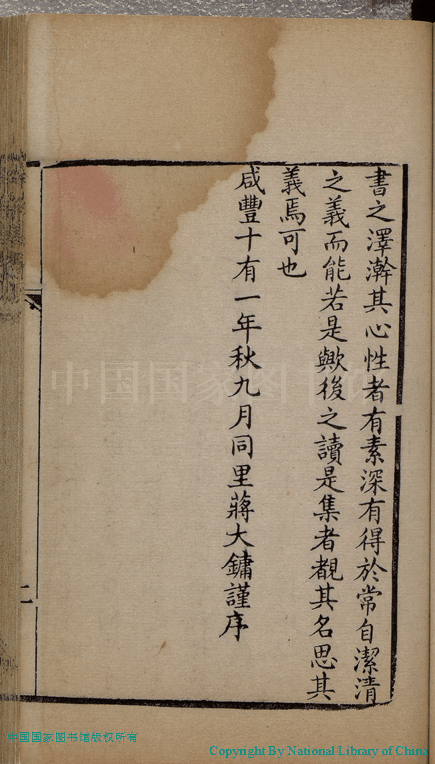 書之澤澣其心性者有素深有得於常自潔清
之義而能若是歟後之讀是集者覩其名思其
義焉可也
咸豐十有一年秋九月同里蔣大鏞謹序
二
中国国家图书馆
中国国家图书馆版权所有
Copyright By National Library of China